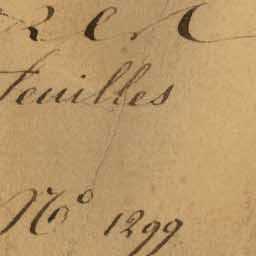 feuilles
Nº 1299